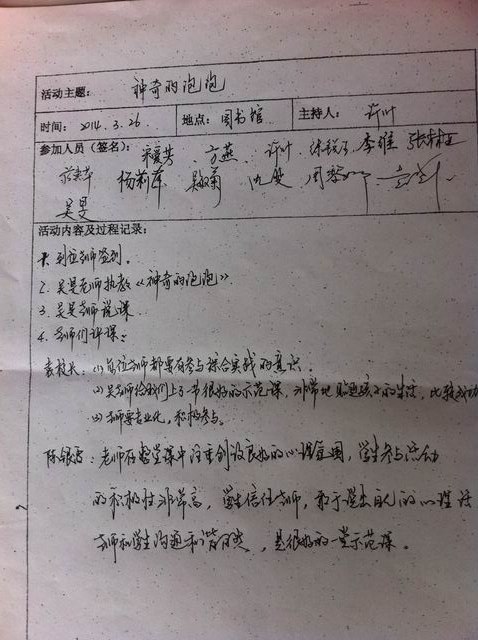 活动主题: 神奇的泡泡
时间: 2014.3.26 地点: 图书馆 主持人: 许叶
参加人员(签名): 宋爱芳 方燕 许叶 李维
杨莉萍
吴旻
活动内容及过程记录:
1. 到位教师签到。
2. 吴旻老师执教《神奇的泡泡》
3. 吴旻老师说课
4. 老师们评课:
袁校长: (1) 每位教师都要有参与综合实践的意识。
(2) 吴老师给我们上了一节很好的示范课,非常地贴近孩子的生活,比较成功
(3) 教师要专业化,积极参与。
老师在整堂课中注重创设良好的心理氛围,学生参与活动
的积极性非常高,学生信任老师,敢于说出自己的心理话
老师和学生沟通和谐,是很好的一堂示范课。